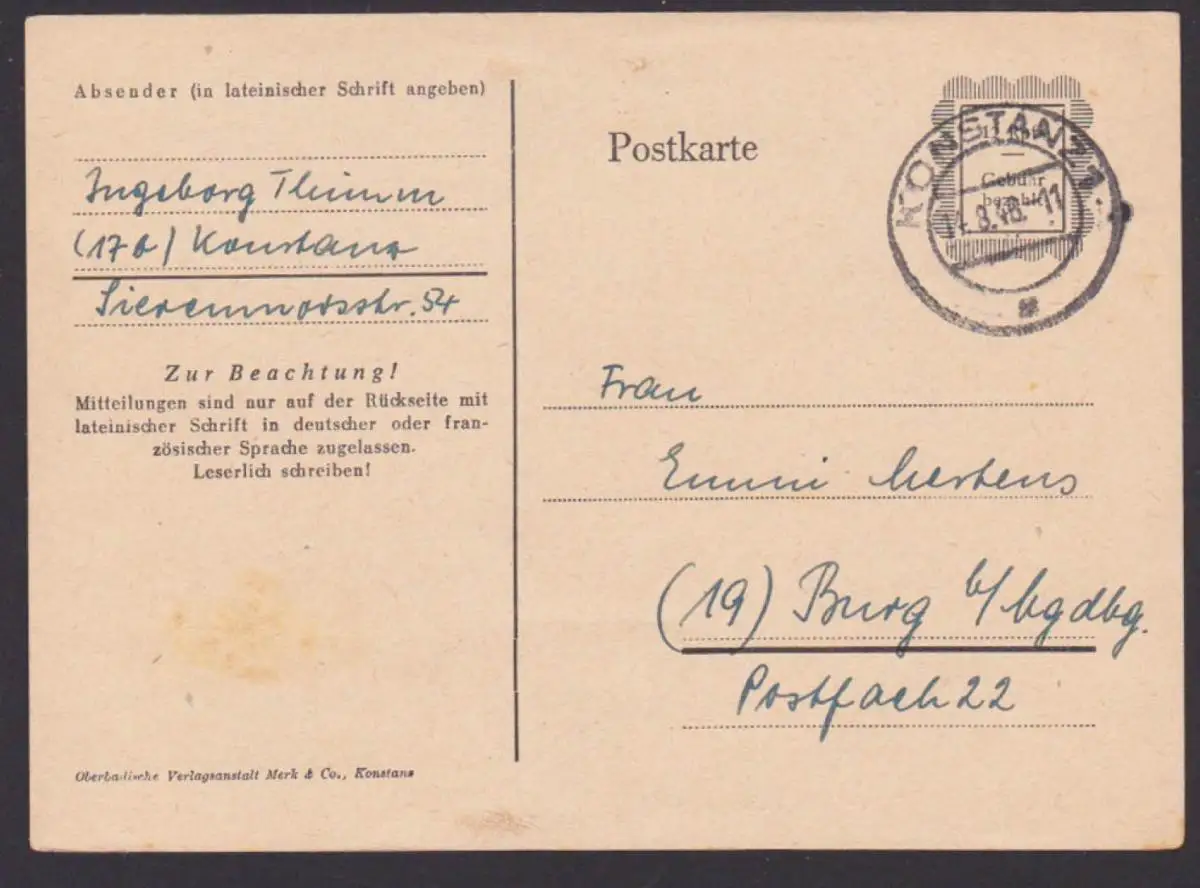 Absender (in lateinischer Schrift angeben)
Ingeborg Thimm
(17a) Konstanz
str. 54
Zur Beachtung!
Mitteilungen sind nur auf der Rückseite mit
lateinischer Schrift in deutscher oder fran-
zösischer Sprache zugelassen.
Leserlich schreiben!
Oberbadische Verlagsanstalt Merk & Co., Konstanz
Postkarte
Gebühr
bezahlt
KONSTANZ 1
8.48. 11
Frau
Emmi Mertens
(19) Burg b/Mgdbg.
Postfach 22